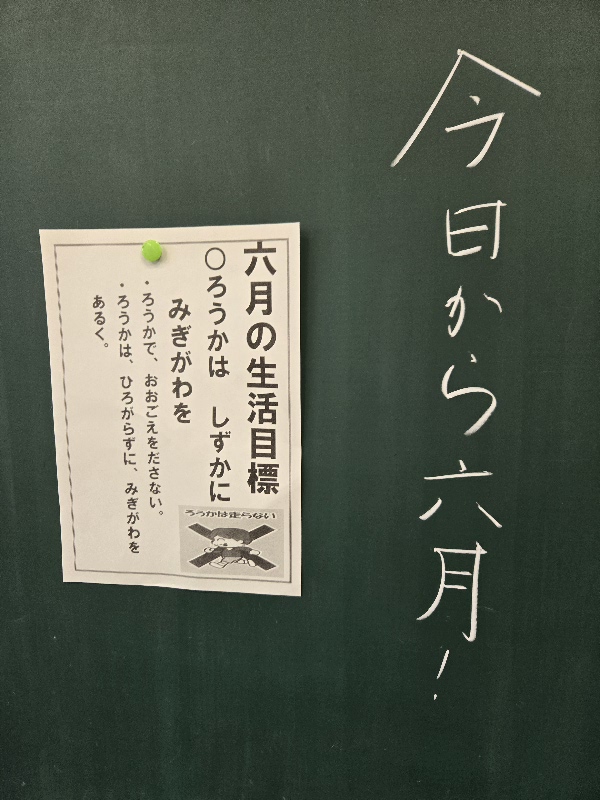 今日から六月！
六月の生活目標
○ろうかは　しずかに
みぎがわを
・ろうかで、おおごえをださない。
・ろうかは、ひろがらずに、みぎがわを
あるく。
ろうかは走らない